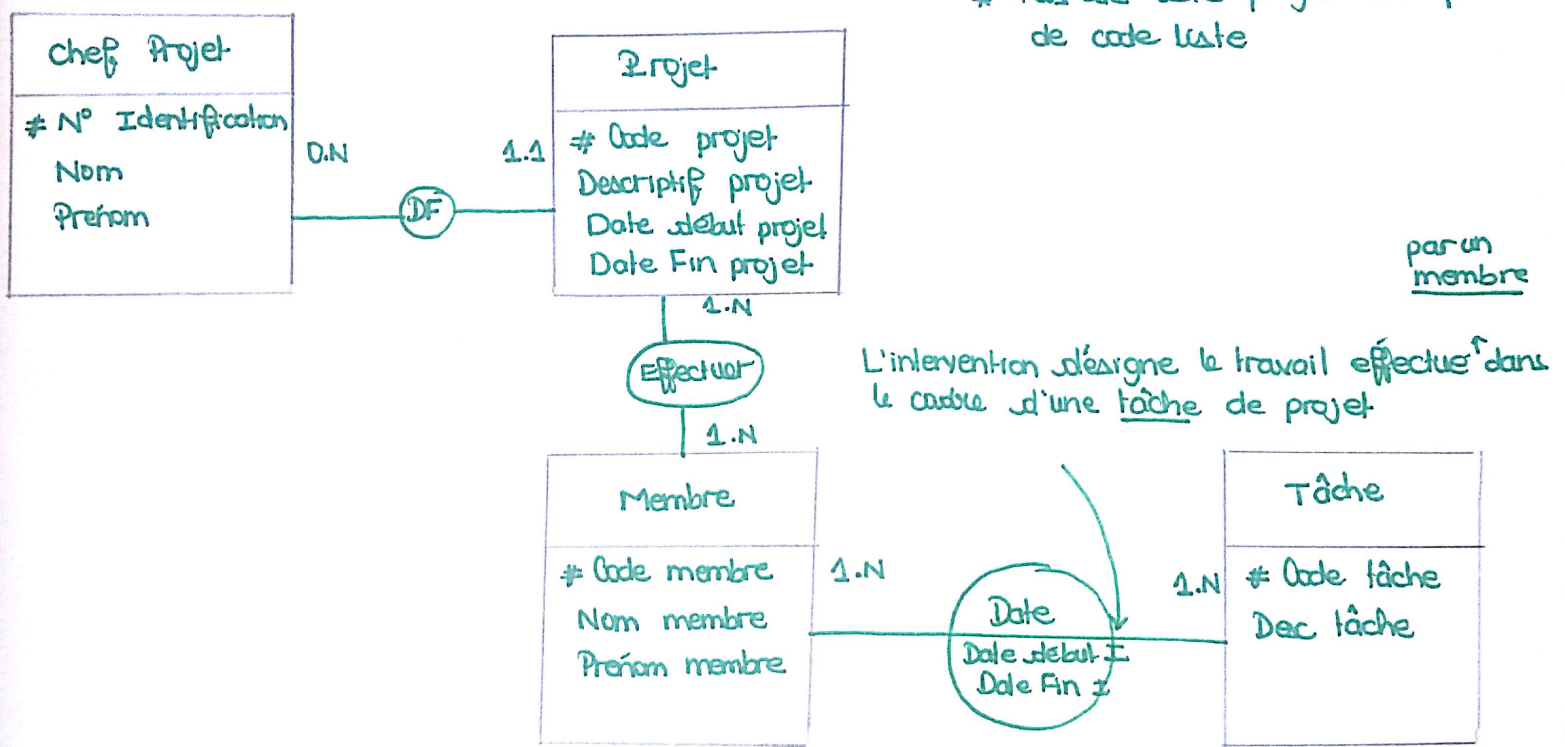 de code liste
Chef Projet
# N° Identification
Nom
Prénom
0.N
DF
1.1
Projet
# Code projet
Descriptif projet
Date début projet
Date Fin projet
1.N
Effectuer
1.N
par un
membre
L'intervention désigne le travail éffectué dans
le cadre d'une tâche de projet
Membre
# Code membre
Nom membre
Prénom membre
1.N
Date
Date début I
Date Fin I
1.N
Tâche
# Code tâche
Desc tâche